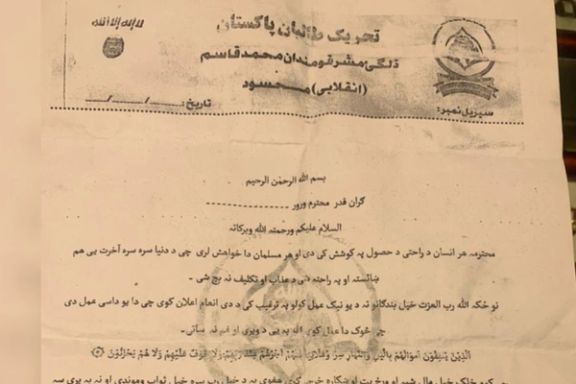 لا اله الا الله
تحریک طالبان پاکستان
ذلګی مشر قومندان محمد قاسم
(انقلابی) محسود
تاریخ: ___/___/___
سیریل نمبر:
بسم الله الرحمن الرحیم
ګران قدر محترم ورور
السلام علیکم ورحمته الله وبرکاته
محترمه هر انسان د راحتی د حصول په کوشش کی دی او هر مسلمان دا خواهش لری چی د دنیا سره سره آخرت بی هم
ښائسته او په راحته د عذاب او تکلیف نه بچ شی -
نو ځکه الله رب العزت خپل بندګانو ته د یو نیک عمل کولو په ترغیب کی د دی انعام اعلان کوی چی دا یو داسی عمل دی
چی څوک دا عمل کوی الله به یی د ویری او غم نه ساتی -
الَّذِينَ يُنفِقُونَ أَمْوَالَهُم بِاللَّيْلِ وَالنَّهَارِ سِرًّا وَعَلَانِيَةً فَلَهُمْ أَجْرُهُمْ عِندَ رَبِّهِمْ وَلَا خَوْفٌ عَلَيْهِمْ وَلَا هُمْ يَحْزَنُونَ